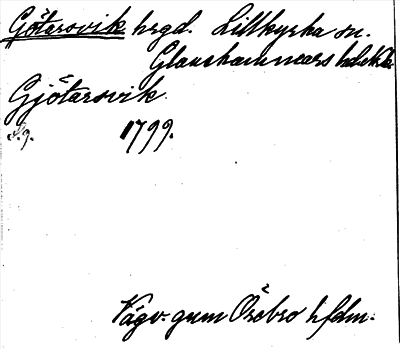 Götarsvik hrgd. Lillkyrka sn.
Glanshammars hd.
Gjötarsvik.
1799.
Vägv. gnm Örebro hfdm.